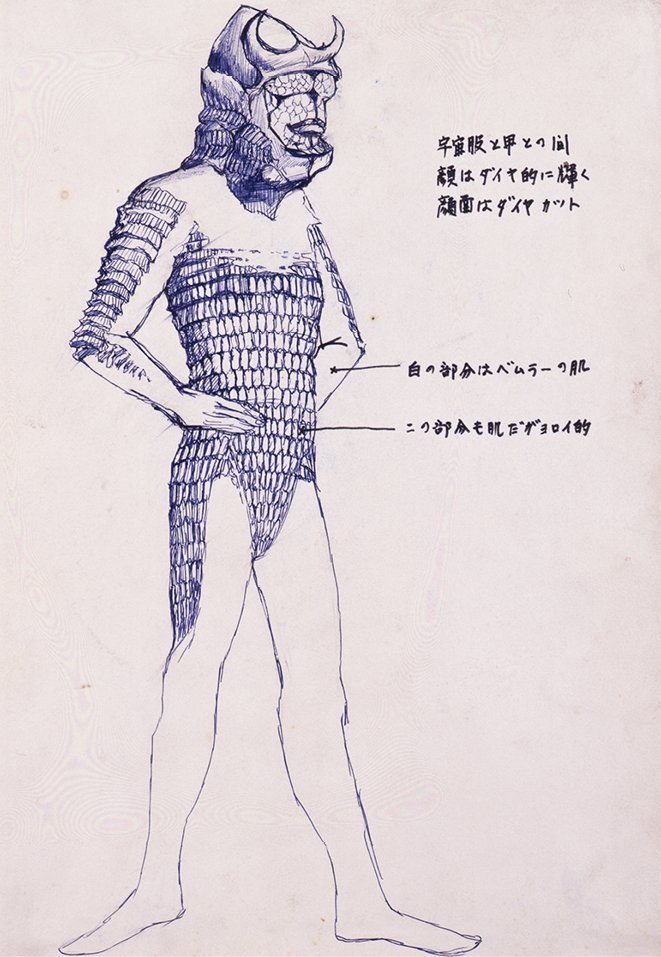 宇宙服と甲との間
顔はダイヤ的に輝く
顔面はダイヤカット
白の部分はベムラーの肌
この部分も肌だがヨロイ的